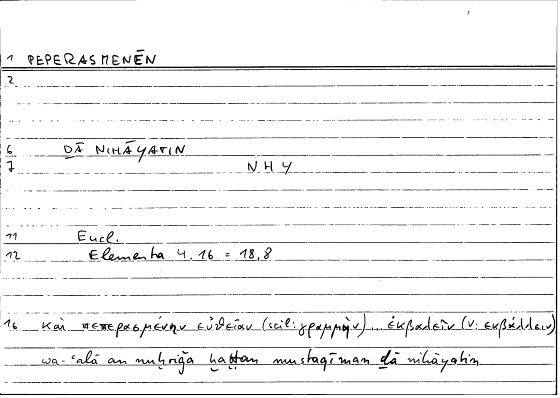 1 PEPERASMENĒN
2
6 ḎĀ NIHĀYATIN
7 NHY
11 Eucl.
12 Elementa 4.16 = 18,8
16 καὶ πεπερασμένην εὐθεῖαν (scil: γραμμὴν)... ἐκβαλεῖν (v: ἐκβάλλειν)
wa-ʿalā an nuḫriǧa ḫaṭṭan mustaqīman ḏā nihāyatin